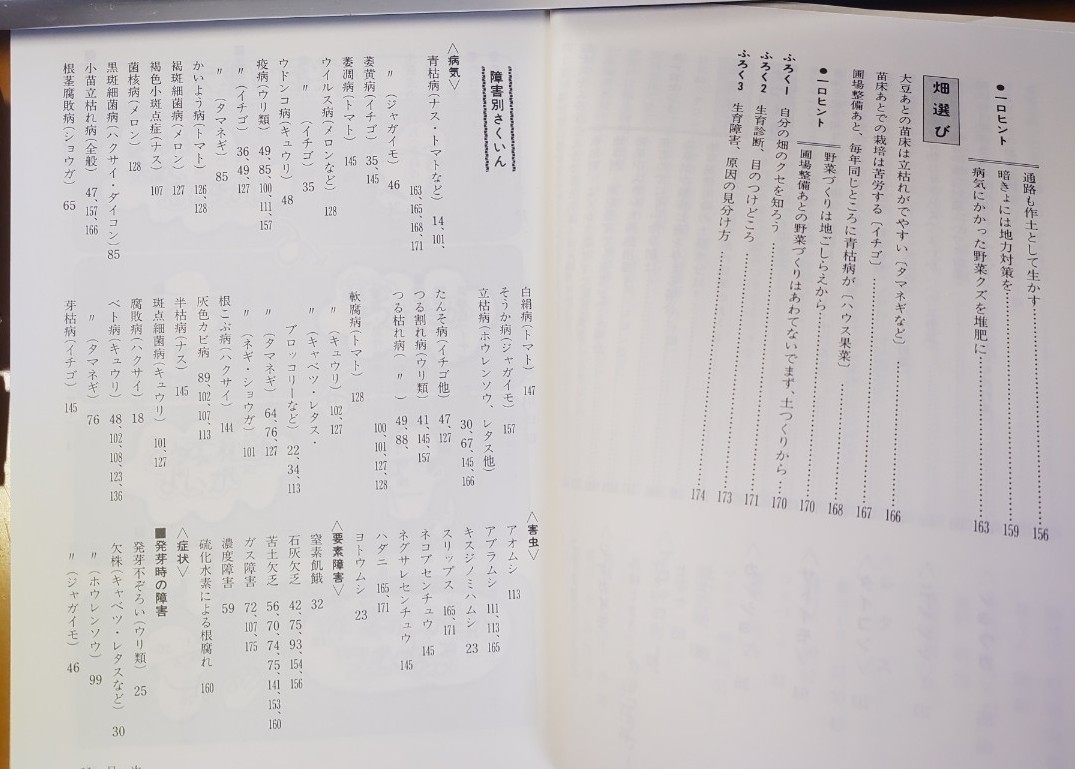 ●一口ヒント
通路も作土として生かす……156
暗きょには地力対策を……159
病気にかかった野菜クズを堆肥に……163
畑選び
大豆あとの苗床は立枯れがでやすい〔タマネギなど〕……166
苗床あとでの栽培は苦労する〔イチゴ〕……167
圃場整備あと、毎年同じところに青枯病が〔ハウス果菜〕……168
●一口ヒント
野菜づくりは地ごしらえから……170
圃場整備あとの野菜づくりはあわてないでまず、土つくりから……170
ふろく1 自分の畑のクセを知ろう……171
ふろく2 生育診断、目のつけどころ……173
ふろく3 生育障害、原因の見分け方……174
障害別さくいん
〈病気〉
青枯病(ナス・トマトなど) 14、101、
163、165、168、171
〃 (ジャガイモ) 46
萎黄病(イチゴ) 35、145
萎凋病(トマト) 145
ウイルス病(メロンなど) 128
〃 (イチゴ) 35
ウドンコ病(キュウリ) 48
疫病(ウリ類) 49、85、100、111、157
〃 (イチゴ) 36、49、127
〃 (タマネギ) 85
かいよう病(トマト) 126、128
褐斑細菌病(メロン) 127
褐色小斑点症(ナス) 107
菌核病(メロン) 128
黒斑細菌病(ハクサイ・ダイコン) 85
小苗立枯れ病(全般) 47、157、166
根茎腐敗病(ショウガ) 65
白絹病(トマト) 147
そうか病(ジャガイモ) 157
立枯病(ホウレンソウ、レタス他)
30、67、145、166
たんそ病(イチゴ他) 47、127
つる割れ病(ウリ類) 41、145、157
つる枯れ病( 〃 ) 49、88、
100、101、127、128
軟腐病(トマト) 128
〃 (キュウリ) 102、127
〃 (キャベツ・レタス・
ブロッコリーなど) 22、34、113
〃 (タマネギ) 64、76、127
〃 (ネギ・ショウガ) 101
根こぶ病(ハクサイ) 144
灰色カビ病 89、102、107、113
半枯病(ナス) 145
斑点細菌病(キュウリ) 101、127
腐敗病(ハクサイ) 18
ベト病(キュウリ) 48、102、108、123、136
〃 (タマネギ) 76
芽枯病(イチゴ) 145
〈害虫〉
アオムシ 113
アブラムシ 111、113、165
キスジノミハムシ 23
スリップス 165、171
ネコブセンチュウ 145
ネグサレセンチュウ 145
ハダニ 165、171
ヨトウムシ 23
〈要素障害〉
窒素飢餓 32
石灰欠乏 42、75、93、154、156
苦土欠乏 56、70、74、75、141、153、160
ガス障害 72、107、175
濃度障害 59
硫化水素による根腐れ 160
〈症状〉
■発芽時の障害
発芽不ぞろい(ウリ類) 25
欠株(キャベツ・レタスなど) 30
〃 (ホウレンソウ) 99
〃 (ジャガイモ) 46